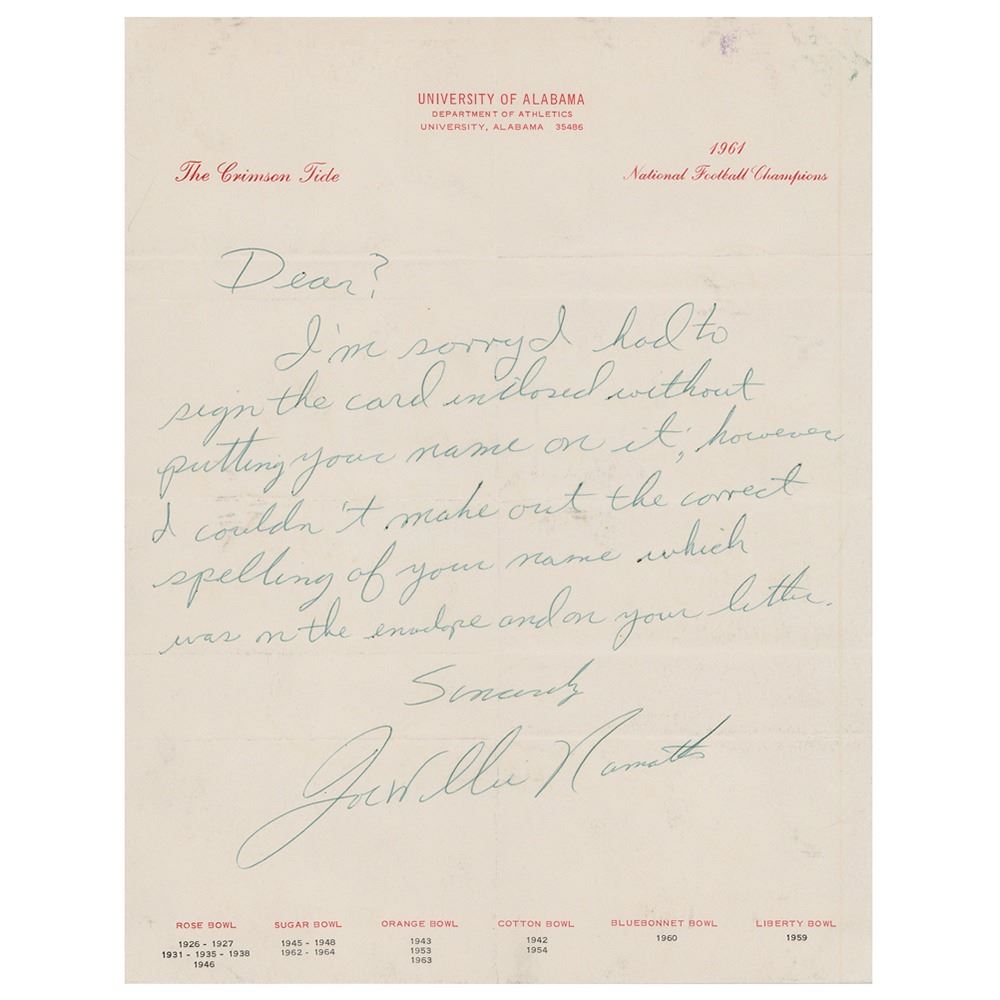 UNIVERSITY OF ALABAMA
DEPARTMENT OF ATHLETICS
UNIVERSITY, ALABAMA 35486
The Crimson Tide
1961
National Football Champions
Dear?
I'm sorry I had to
sign the card inclosed without
putting your name on it; however
I couldn't make out the correct
spelling of your name which
was on the envelope and on your letter.
Sincerely
Joe Willie Namath
ROSE BOWL
1926 - 1927
1931 - 1935 - 1938
1946
SUGAR BOWL
1945 - 1948
1962 - 1964
ORANGE BOWL
1943
1953
1963
COTTON BOWL
1942
1954
BLUEBONNET BOWL
1960
LIBERTY BOWL
1959